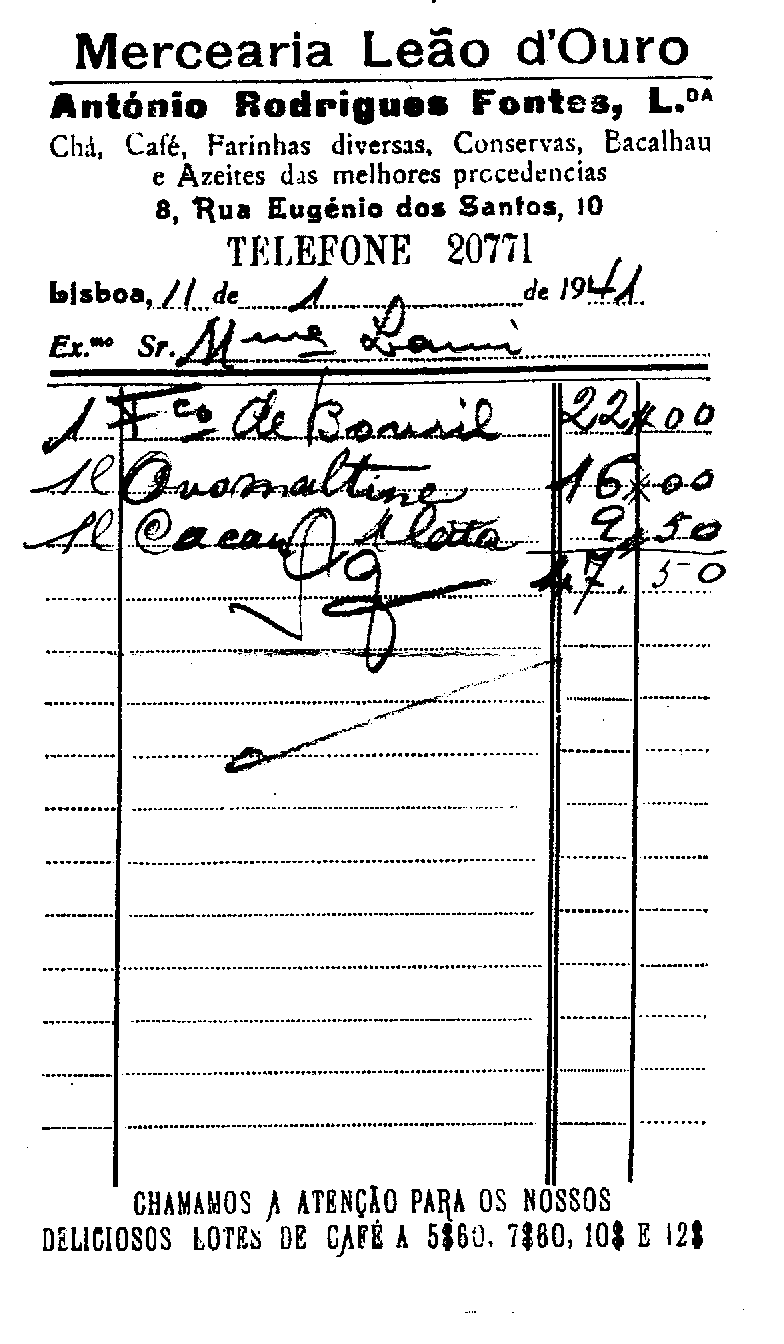 Mercearia Leão d'Ouro
António Rodrigues Fontes, L.DA
Chá, Café, Farinhas diversas, Conservas, Bacalhau
e Azeites das melhores precedencias
8, Rua Eugénio dos Santos, 10
TELEFONE 20771
Lisboa, 11 de 1 de 1941
Ex.mo Sr. Mme
1 Fco de Bovril 22$00
1l Ovomaltine 16$00
1l Cacau 1 lata 9,50
47.50
CHAMAMOS A ATENÇÃO PARA OS NOSSOS
DELICIOSOS LOTES DE CAFÉ A 5$60, 7$80, 10$ E 12$